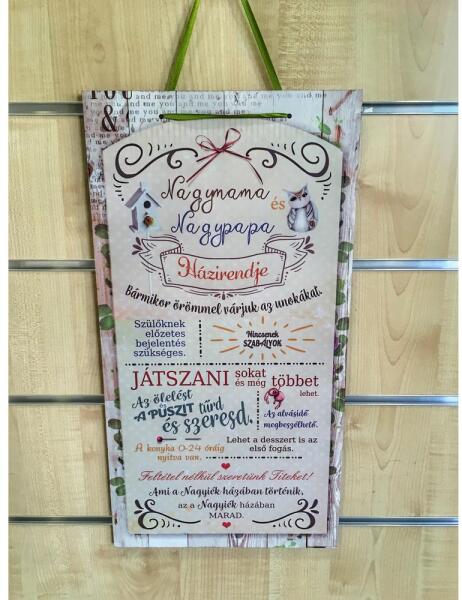 YOU
and me you and me you and me
and me you and me you and me you and me
&
Nagymama
és
Nagypapa
Házirendje
Bármikor örömmel várjuk az unokákat.
Szülőknek
előzetes
bejelentés
szükséges.
Nincsenek
SZABÁLYOK
JÁTSZANI sokat
és még többet
lehet.
Az ölelést
A PUSZIT tűrd
és szeresd.
Az alvásidő
megbeszélhető.
A konyha 0-24 óráig
nyitva van.
Lehet a desszert is az
első fogás.
Feltétel nélkül szeretünk Titeket!
Ami a Nagyiék házában történik,
az a Nagyiék házában
MARAD.